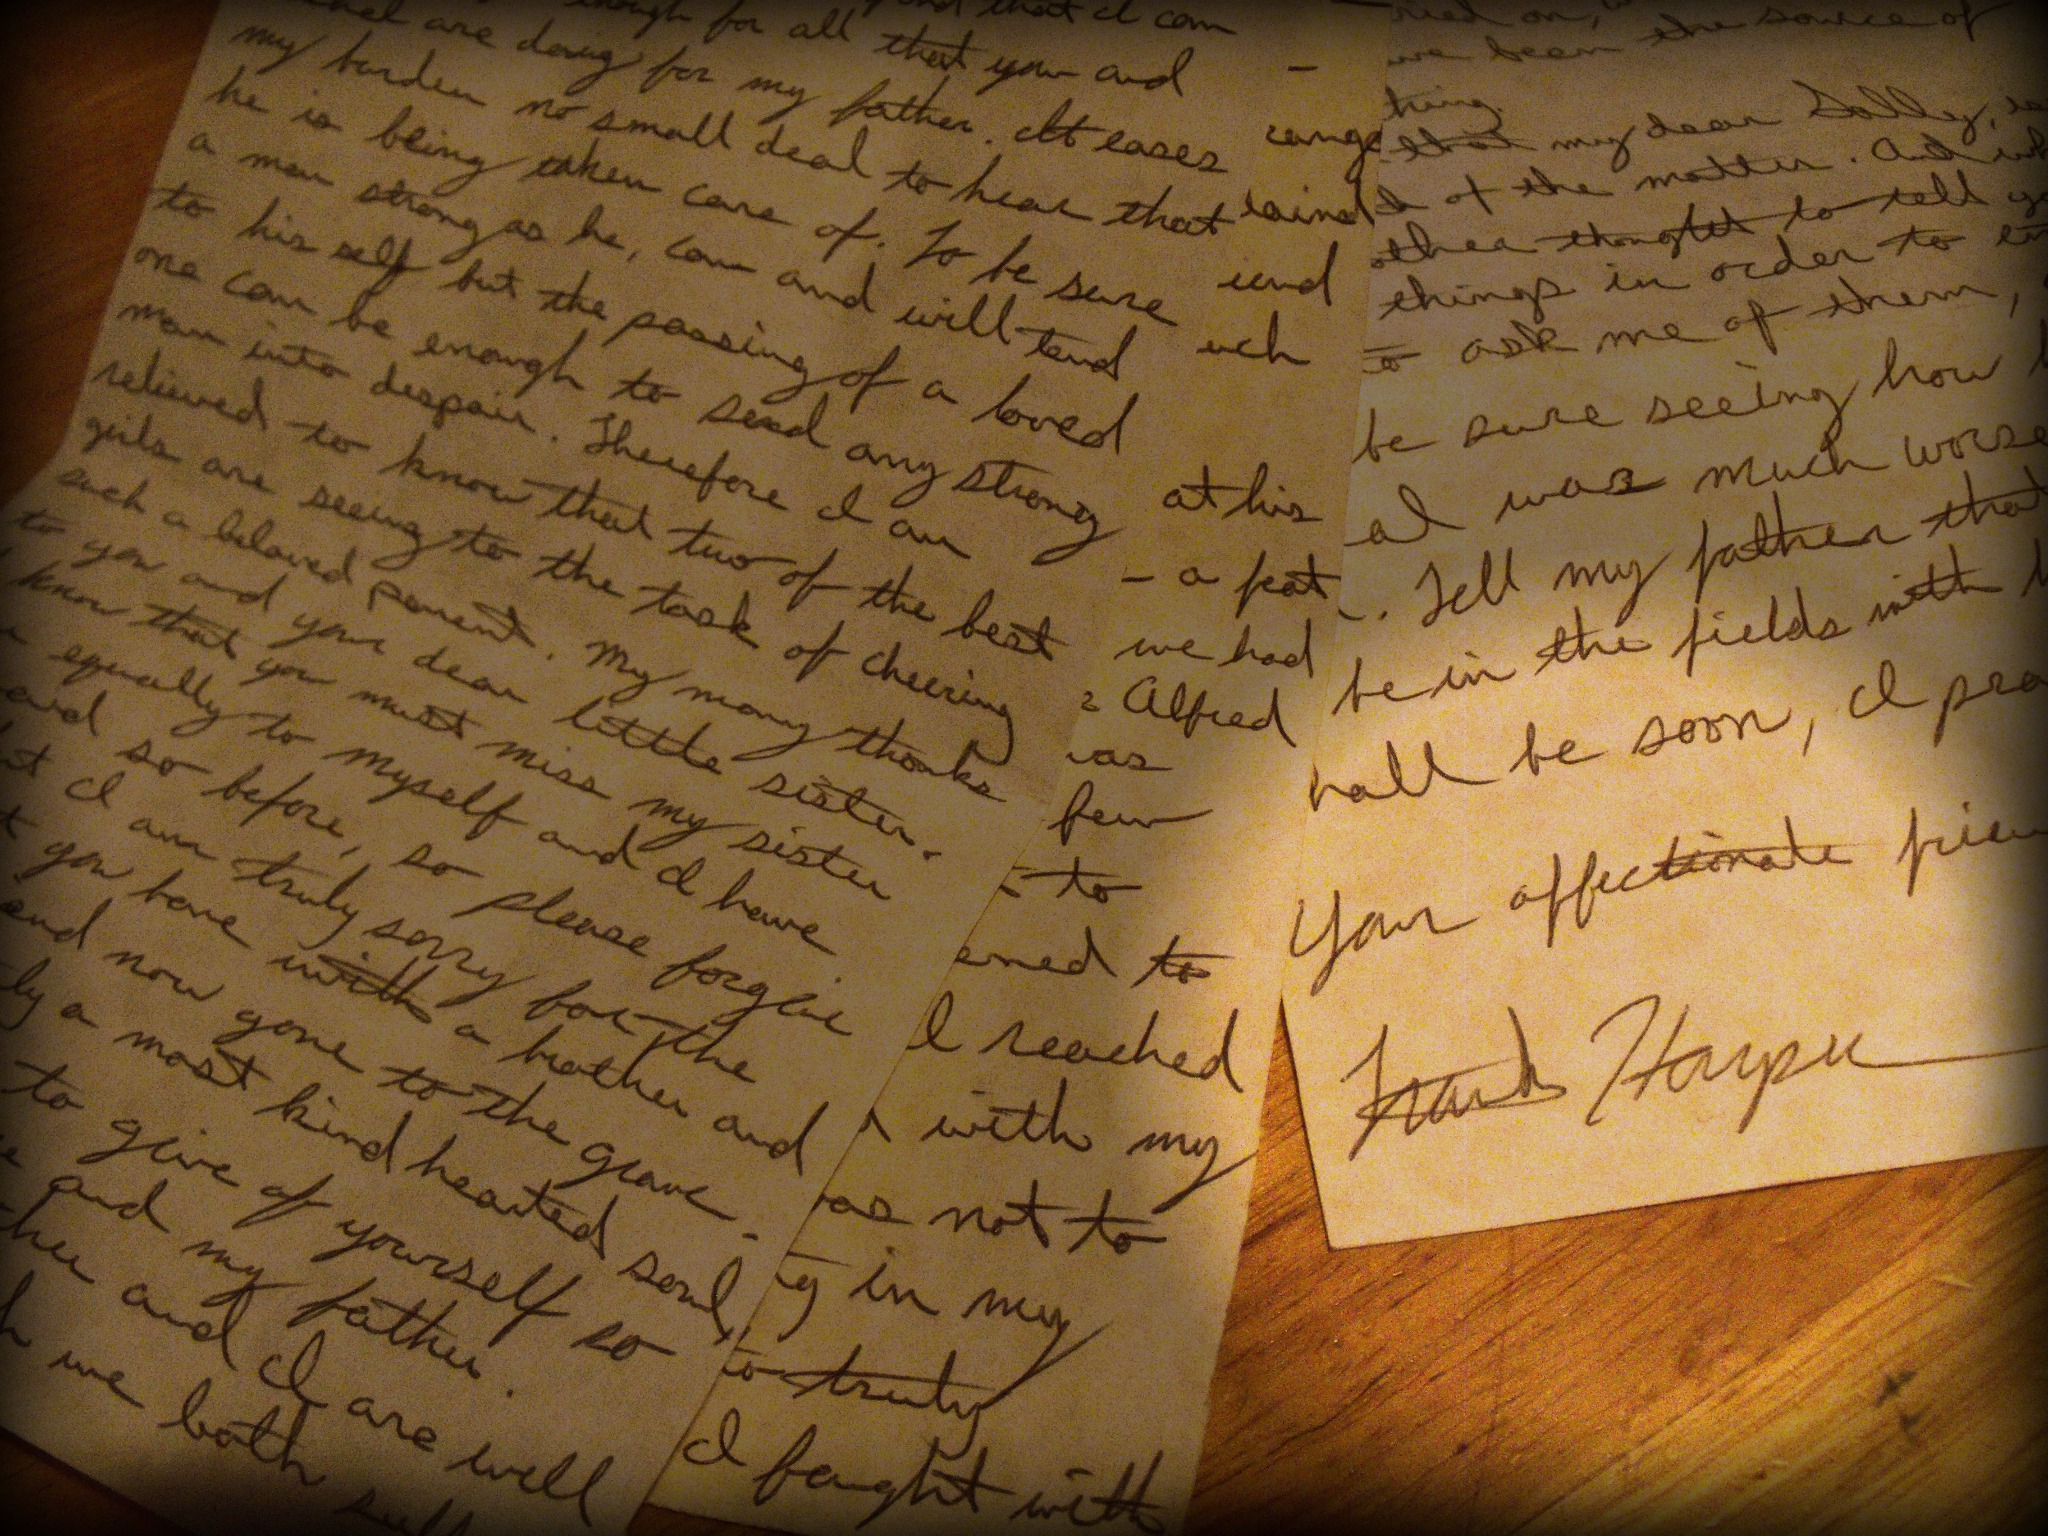 enough for all that you and
are doing for my father. It eases
my burden no small deal to hear that
he is being taken care of. To be sure
a man strong as he, can and will tend
to his self but the passing of a loved
one can be enough to send any strong
man into despair. Therefore I am
relieved to know that two of the best
girls are seeing to the task of cheering
such a beloved parent. My many thanks
to you and your dear little sister.
know that you must miss my sister
equally to myself and I have
said so before, so please forgive
I am truly sorry for the
you have with a brother and
and now gone to the grave.
a most kind hearted soul,
to give of yourself so
and my father.
and I are well
we both
at his
- a feat
we had
Alfred
was
few
to
to
I reached
with my
as not to
in my
to truly
I fought with
been the source of
thing.
that my dear Sally, is
of the matter. And
other thought to tell
things in order to
to ask me of them,
be sure seeing how
I was much worse
. Tell my father that
be in the fields with
hall be soon, I pra
Your affectionate frien
Frank Harper